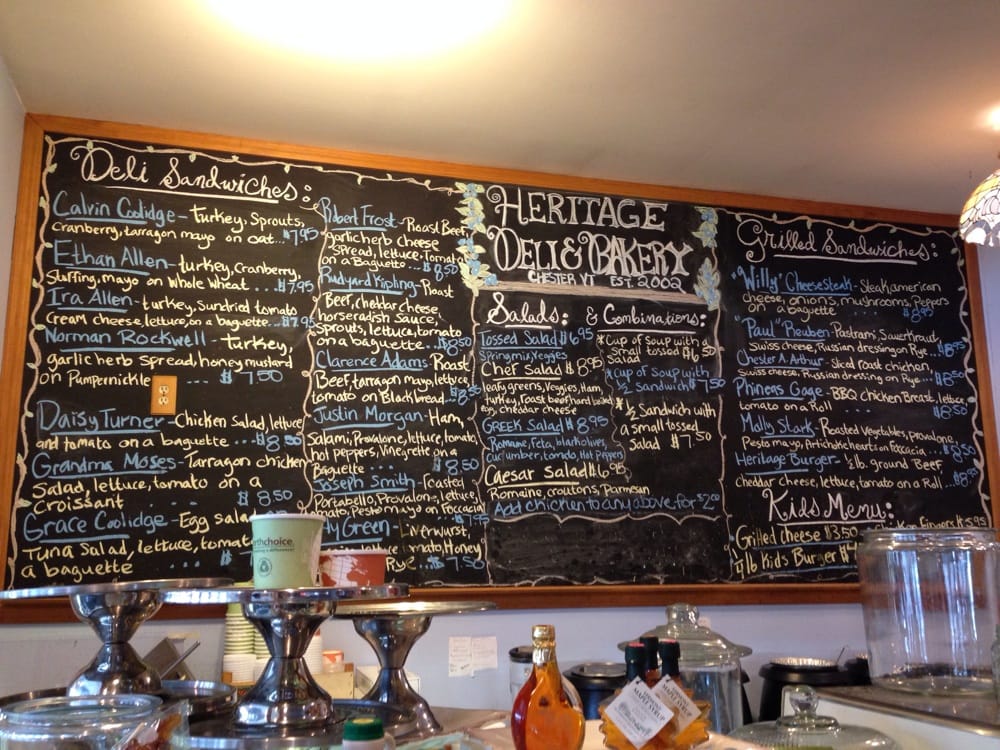 Deli Sandwiches:
Calvin Coolidge - turkey, Sprouts,
Cranberry, tarragon mayo on oat... $7.95
Ethan Allen - turkey, Cranberry,
Stuffing, mayo on Whole Wheat ... $7.95
Ira Allen - turkey, Sundried tomato
Cream cheese, lettuce, on a baguette... $7.95
Norman Rockwell - turkey,
garlic herb spread, honey mustard
on Pumpernickle ... $7.50
Daisy Turner - Chicken salad, lettuce
and tomato on a baguette ... $8.50
Grandma Moses - Tarragon chicken
Salad, lettuce, tomato on a
Croissant ... $8.50
Grace Coolidge - Egg salad
Tuna Salad, lettuce, tomato
a baguette ...
Robert Frost - Roast Beef,
garlic herb cheese
Spread, lettuce, Tomato
on a Baguette ... $8.50
Rudyard Kipling - Roast
Beef, cheddar cheese,
horseradish Sauce,
Sprouts, lettuce, tomato
on a baguette ... $8.50
Clarence Adams - Roast
Beef, tarragon mayo, lettuce,
tomato on Black bread ... $8.50
Justin Morgan - Ham,
Salami, Provalone, lettuce, tomato,
hot peppers, Vinegrette on a
Baguette ... $8.50
Joseph Smith - Roasted
Portabello, Provalone, lettuce,
tomato, Pesto mayo on Foccacia
$7.95
Green - Liverwurst,
Honey
Rye ... $7.50
HERITAGE
DELI & BAKERY
CHESTER VT EST. 2002
Salads: & Combinations:
Tossed Salad $6.95
Springmix, Veggies
Chef Salad $8.95
leafy greens, Veggies, Ham,
turkey, roast beef, hard boiled
egg, cheddar cheese
GREEK Salad $8.95
Romaine, Feta, black olives,
Cucumber, tomato, Hot Peppers
Caesar salad $6.95
Romaine, croutons, Parmesan
Add chicken to any above for $2.00
*Cup of Soup with a
Small tossed $6.50
*Cup of Soup with
1/2 Sandwich $7.50
*1/2 Sandwich with
a small tossed
Salad $7.50
Grilled Sandwiches:
"Willy" Cheesesteak - Steak, american
cheese, onions, mushrooms, Peppers
on a baguette ... $8.95
"Paul" Reuben - Pastrami, Sauerkraut,
Swiss cheese, Russian dressing on Rye... $8.95
Chester A. Arthur - Sliced roast chicken,
Swiss cheese, Russian dressing on Rye... $8.95
Phineas Gage - BBQ Chicken Breast, lettuce,
tomato on a Roll ... $8.50
Molly Stark - Roasted Vegetables, Provalone,
Pesto mayo, Artichoke hearts on Foccacia... $8.50
Heritage Burger - 1/2 lb. ground Beef
cheddar cheese, lettuce, tomato on a Roll ... $8.95
Kids Menu:
Grilled Cheese $3.50
Chicken Fingers $5.95
1/4 lb Kids Burger
earthchoice
MAPLE SYRUP